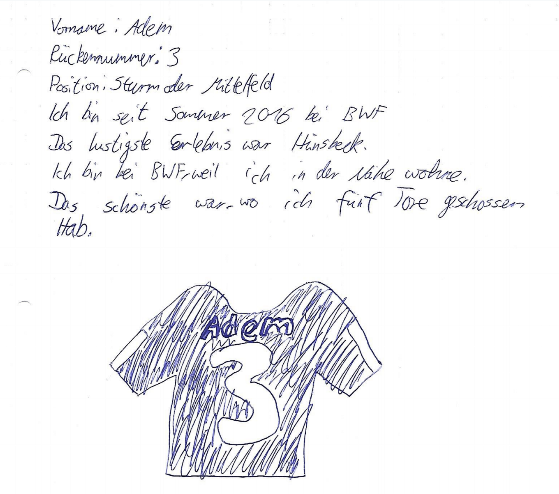 Vorname: Adem
Rückennummer: 3
Position: Sturm oder Mittelfeld
Ich bin seit Sommer 2016 bei BWF
Das lustigste Erlebnis war Hünsbeck.
Ich bin bei BWF, weil ich in der Nähe wohne.
Das schönste war, wo ich fünf Tore geschossen
Hab.
Adem
3